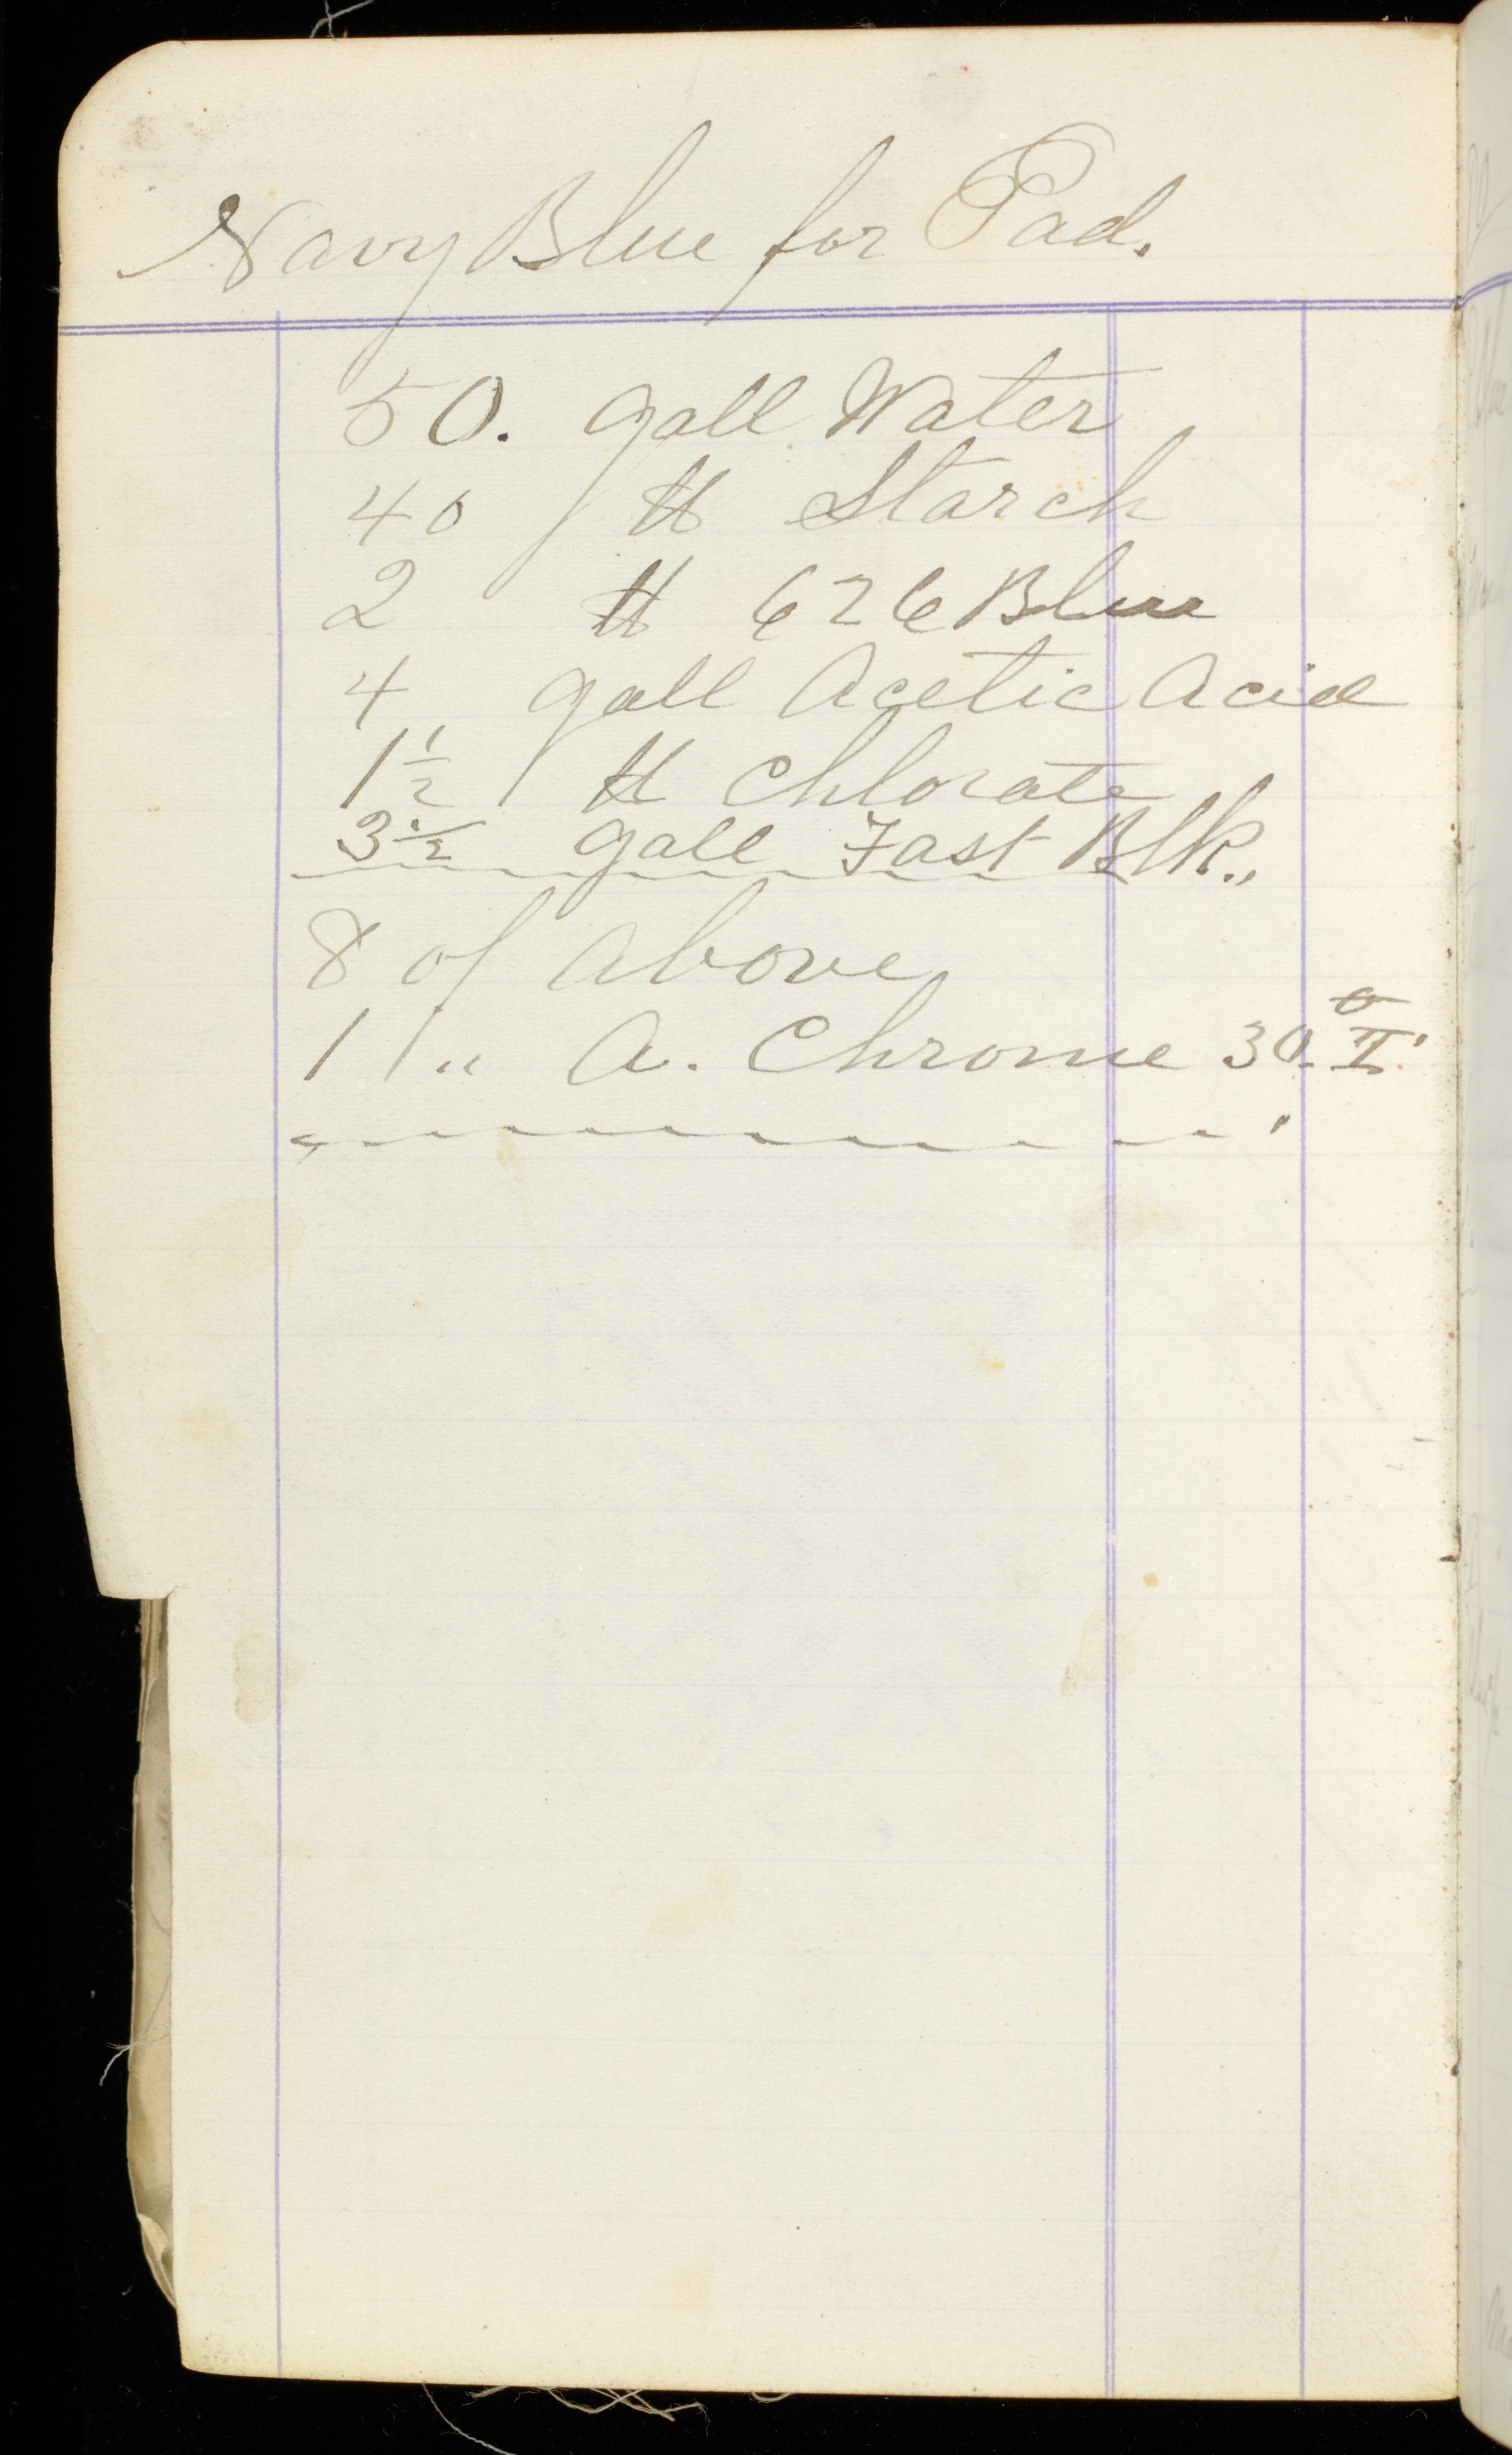 Navy Blue for Pad.
50. gall Water
40 # Starch
2 # 626 Blue
4 gall Acetic Acid
1½ # Chlorate
3½ gall Fast Blk.,
8 of Above
1 " A. Chrome 30. °T.